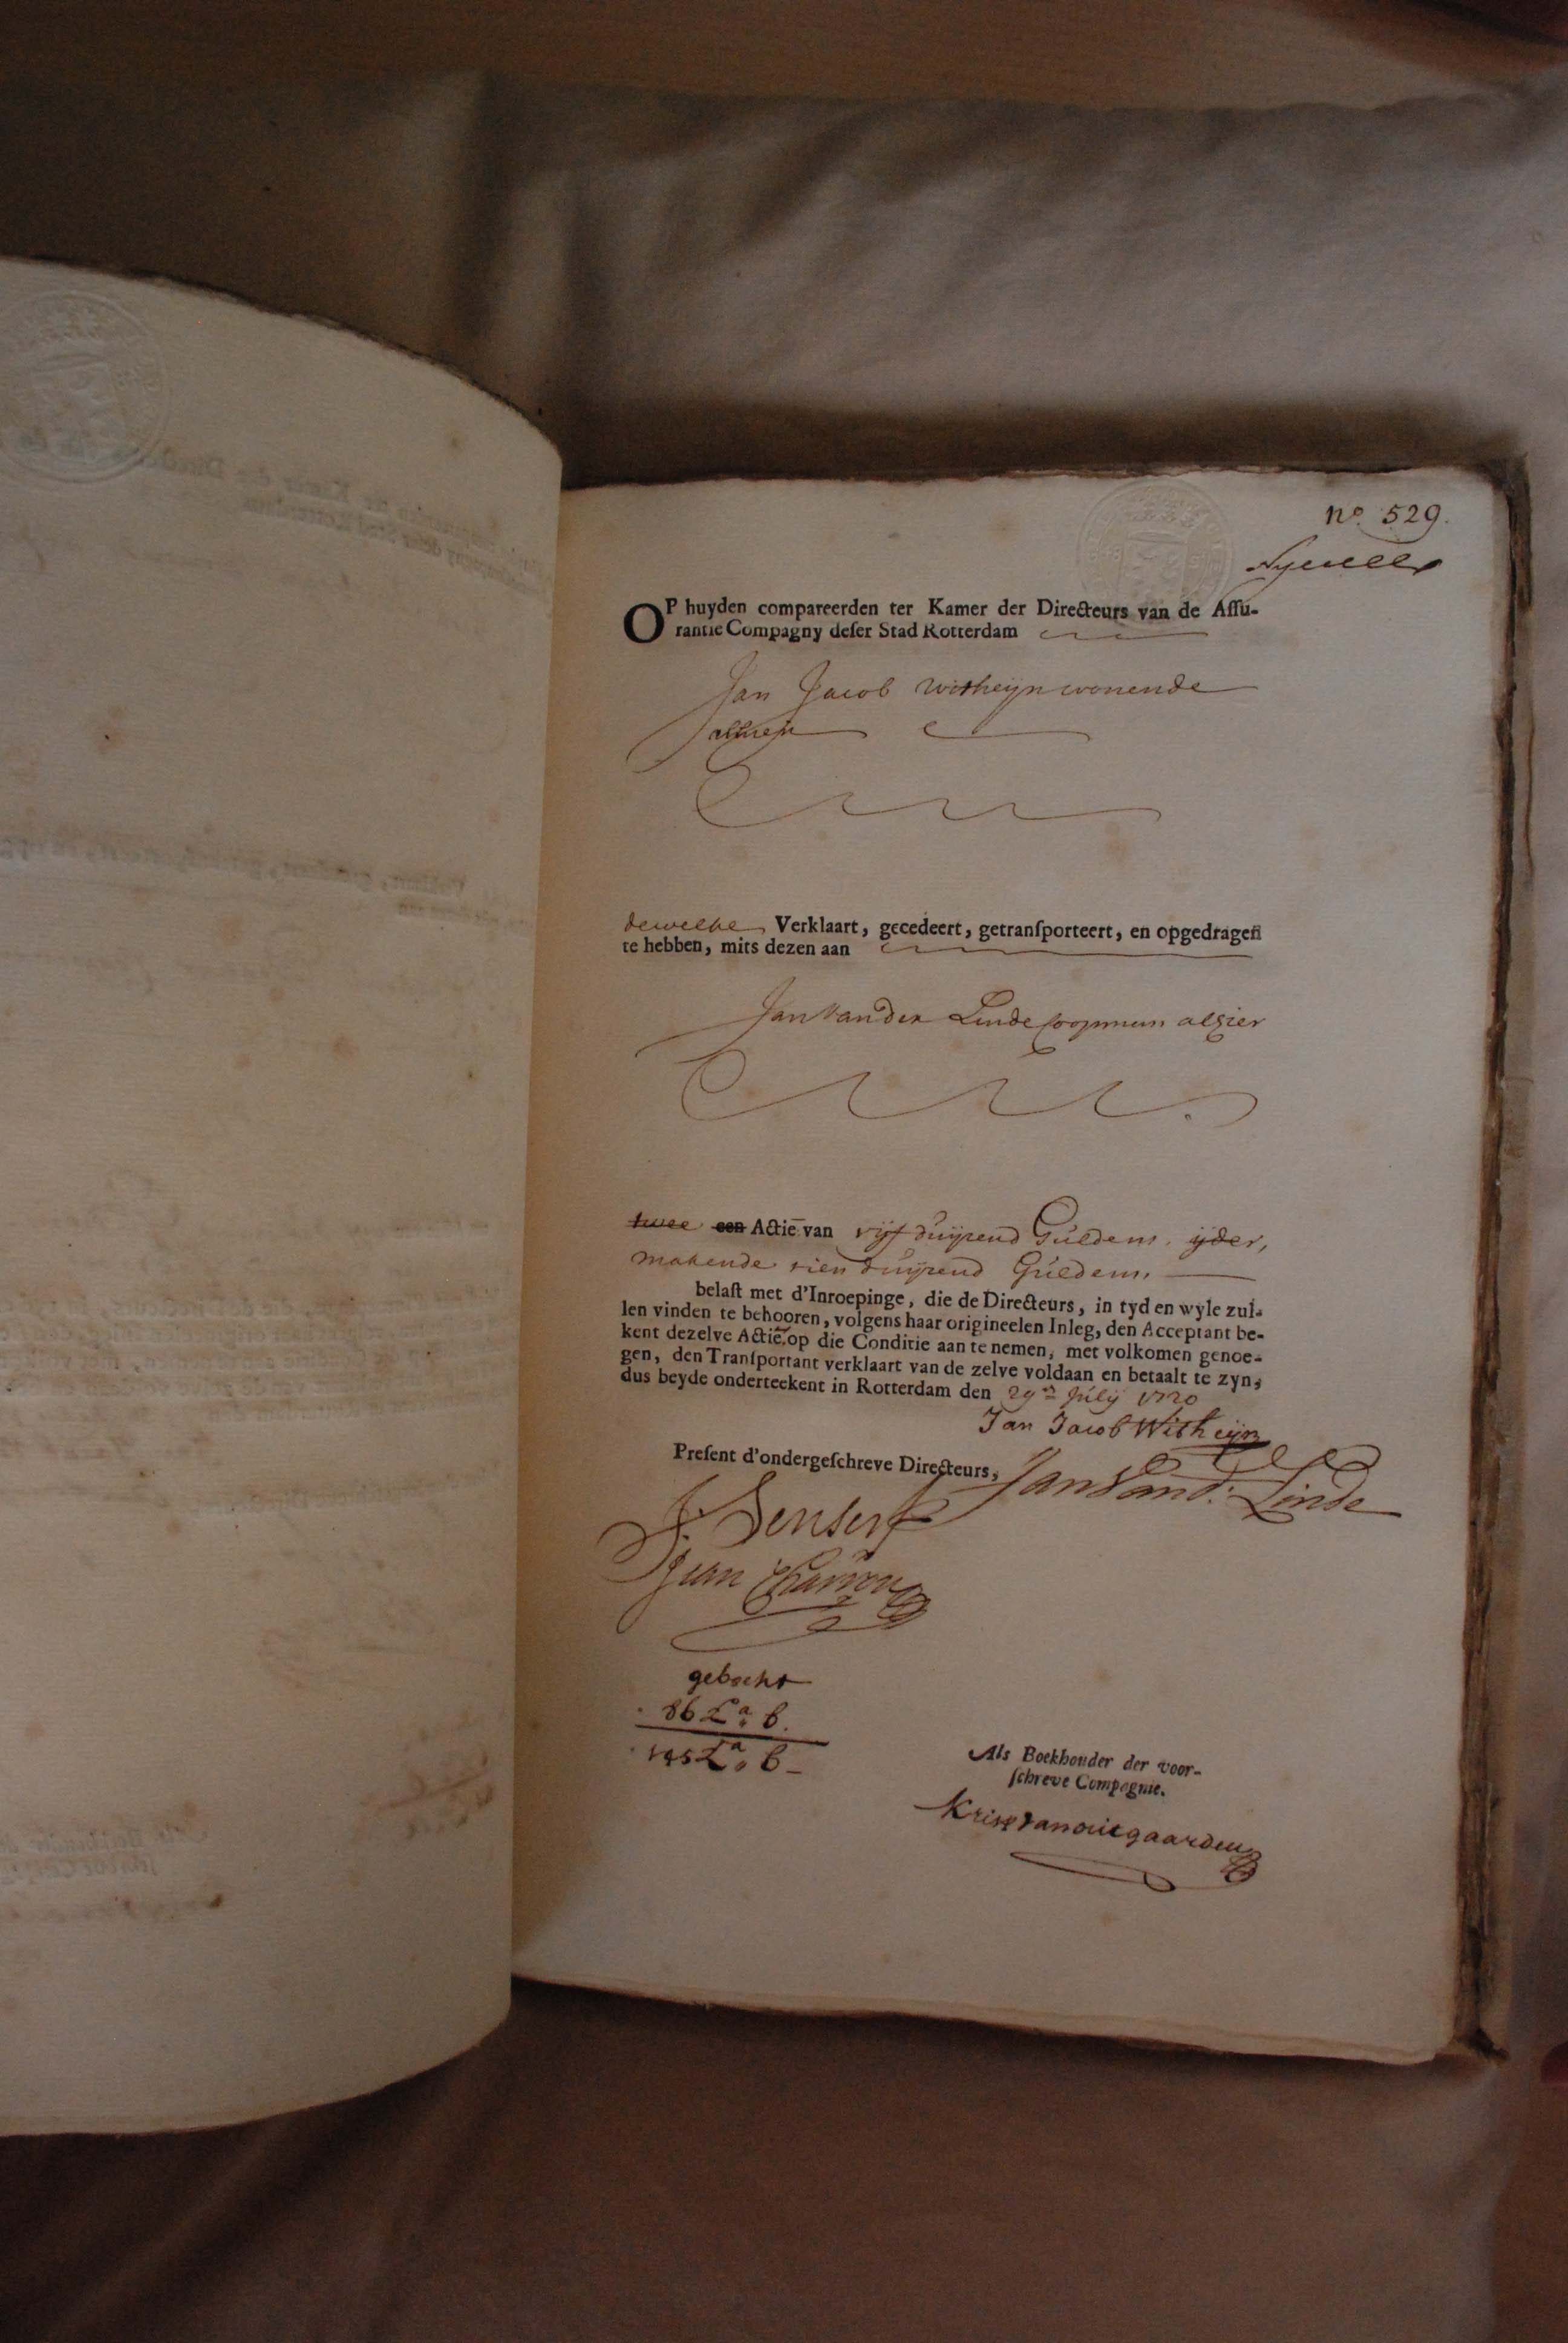 nº. 529.
OP huyden compareerden ter Kamer der Directeurs van de Aſſu-
rantie Compagny deſer Stad Rotterdam
Jan Jacob Witheijn wonende
alhier
dewelke Verklaart, gecedeert, getranſporteert, en opgedragen
te hebben, mits dezen aan
Jan Van der Linde Coopman alhier
twee een Actie van vijf duijzend Guldens. ijder,
makende tien duijzend Guldens.
belaſt met d'Inroepinge, die de Directeurs, in tyd en wyle zul-
len vinden te behooren, volgens haar origineelen Inleg, den Acceptant be-
kent dezelve Actie op die Conditie aan te nemen, met volkomen genoe-
gen, den Tranſportant verklaart van de zelve voldaan en betaalt te zyn,
dus beyde onderteekent in Rotterdam den 29en Julij 1720
Jan Jacob Witheijn
Preſent d'ondergeſchreve Directeurs, Jan Vand: Linde
J. Senserf
Jean Chaŕron
geboekt
86 La. b.
195 La. b
Als Boekhouder der voor-
ſchreve Compagnie.